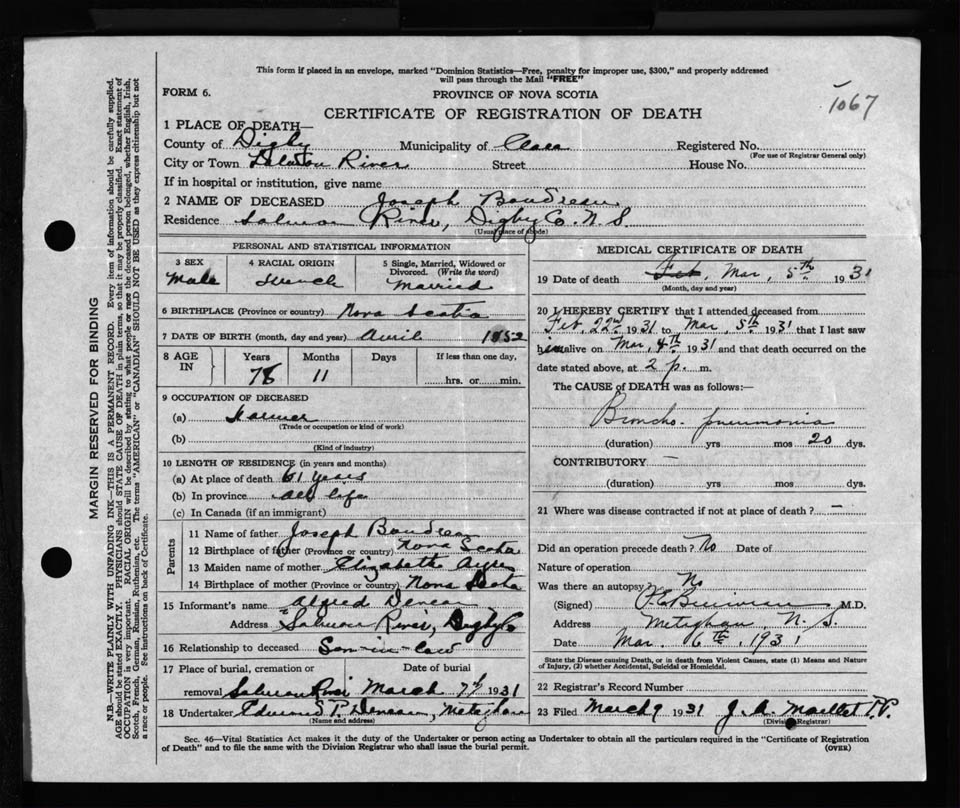 This form if placed in an envelope, marked "Dominion Statistics—Free, penalty for improper use, $300," and properly addressed
will pass through the Mail "FREE"
FORM 6.
PROVINCE OF NOVA SCOTIA
1067
CERTIFICATE OF REGISTRATION OF DEATH
1 PLACE OF DEATH—
County of Digby Municipality of Clare Registered No.
(For use of Registrar General only)
City or Town River Street House No.
If in hospital or institution, give name
2 NAME OF DECEASED Joseph Boudreau
Residence Salmon River, Digby Co. N.S.
(Usual place of abode)
PERSONAL AND STATISTICAL INFORMATION
3 SEX 4 RACIAL ORIGIN 5 Single, Married, Widowed or
Divorced. (Write the word)
Male French Married
6 BIRTHPLACE (Province or country) Nova Scotia
7 DATE OF BIRTH (month, day and year) April 1852
8 AGE IN Years Months Days If less than one day,
78 11 hrs. or min.
9 OCCUPATION OF DECEASED
(a) Farmer
(Trade or occupation or kind of work)
(b)
(Kind of industry)
10 LENGTH OF RESIDENCE (in years and months)
(a) At place of death 61 years
(b) In province all life
(c) In Canada (if an immigrant)
Parents
11 Name of father Joseph Boudreau
12 Birthplace of father (Province or country) Nova Scotia
13 Maiden name of mother Elizabeth
14 Birthplace of mother (Province or country) Nova Scotia
15 Informant's name Alfred Deveau
Address Salmon River, Digby Co
16 Relationship to deceased Son-in-law
17 Place of burial, cremation or Date of burial
removal Salmon River March 7th 1931
18 Undertaker P. Deveau, Meteghan
(Name and address)
MEDICAL CERTIFICATE OF DEATH
19 Date of death Feb, Mar, 5th 1931
(Month, day and year)
20 I HEREBY CERTIFY that I attended deceased from
Feb, 22nd 1931 to Mar, 5th 1931 that I last saw
him alive on Mar, 4th 1931 and that death occurred on the
date stated above, at 2 p. m.
The CAUSE of DEATH was as follows:—
Broncho. pneumonia
(duration) yrs mos 20 dys.
CONTRIBUTORY —
(duration) yrs. mos. dys.
21 Where was disease contracted if not at place of death? —
Did an operation precede death? No Date of
Nature of operation
Was there an autopsy No
(Signed) M.D.
Address Meteghan, N.S.
Date Mar. 6th, 1931
State the Disease causing Death, or in death from Violent Causes, state (1) Means and Nature
of Injury, (2) whether Accidental, Suicidal or Homicidal.
22 Registrar's Record Number
23 Filed March 9 1931 J. A. Maillet
(Division Registrar)
Sec. 46—Vital Statistics Act makes it the duty of the Undertaker or person acting as Undertaker to obtain all the particulars required in the "Certificate of Registration
of Death" and to file the same with the Division Registrar who shall issue the burial permit.
(OVER)
MARGIN RESERVED FOR BINDING
N.B.—WRITE PLAINLY WITH UNFADING INK—THIS IS A PERMANENT RECORD. Every item of information should be carefully supplied.
AGE should be stated EXACTLY. PHYSICIANS should STATE CAUSE OF DEATH in plain terms, so that it may be properly classified. Exact statement of
OCCUPATION is very important. RACIAL ORIGIN will be described by stating to what people or race the deceased person belonged, whether English, Irish,
Scotch, French, German, Russian, Ruthenian, etc. The terms "AMERICAN" or "CANADIAN" SHOULD NOT BE USED as they express citizenship but not
a race or people. See instructions on back of Certificate.